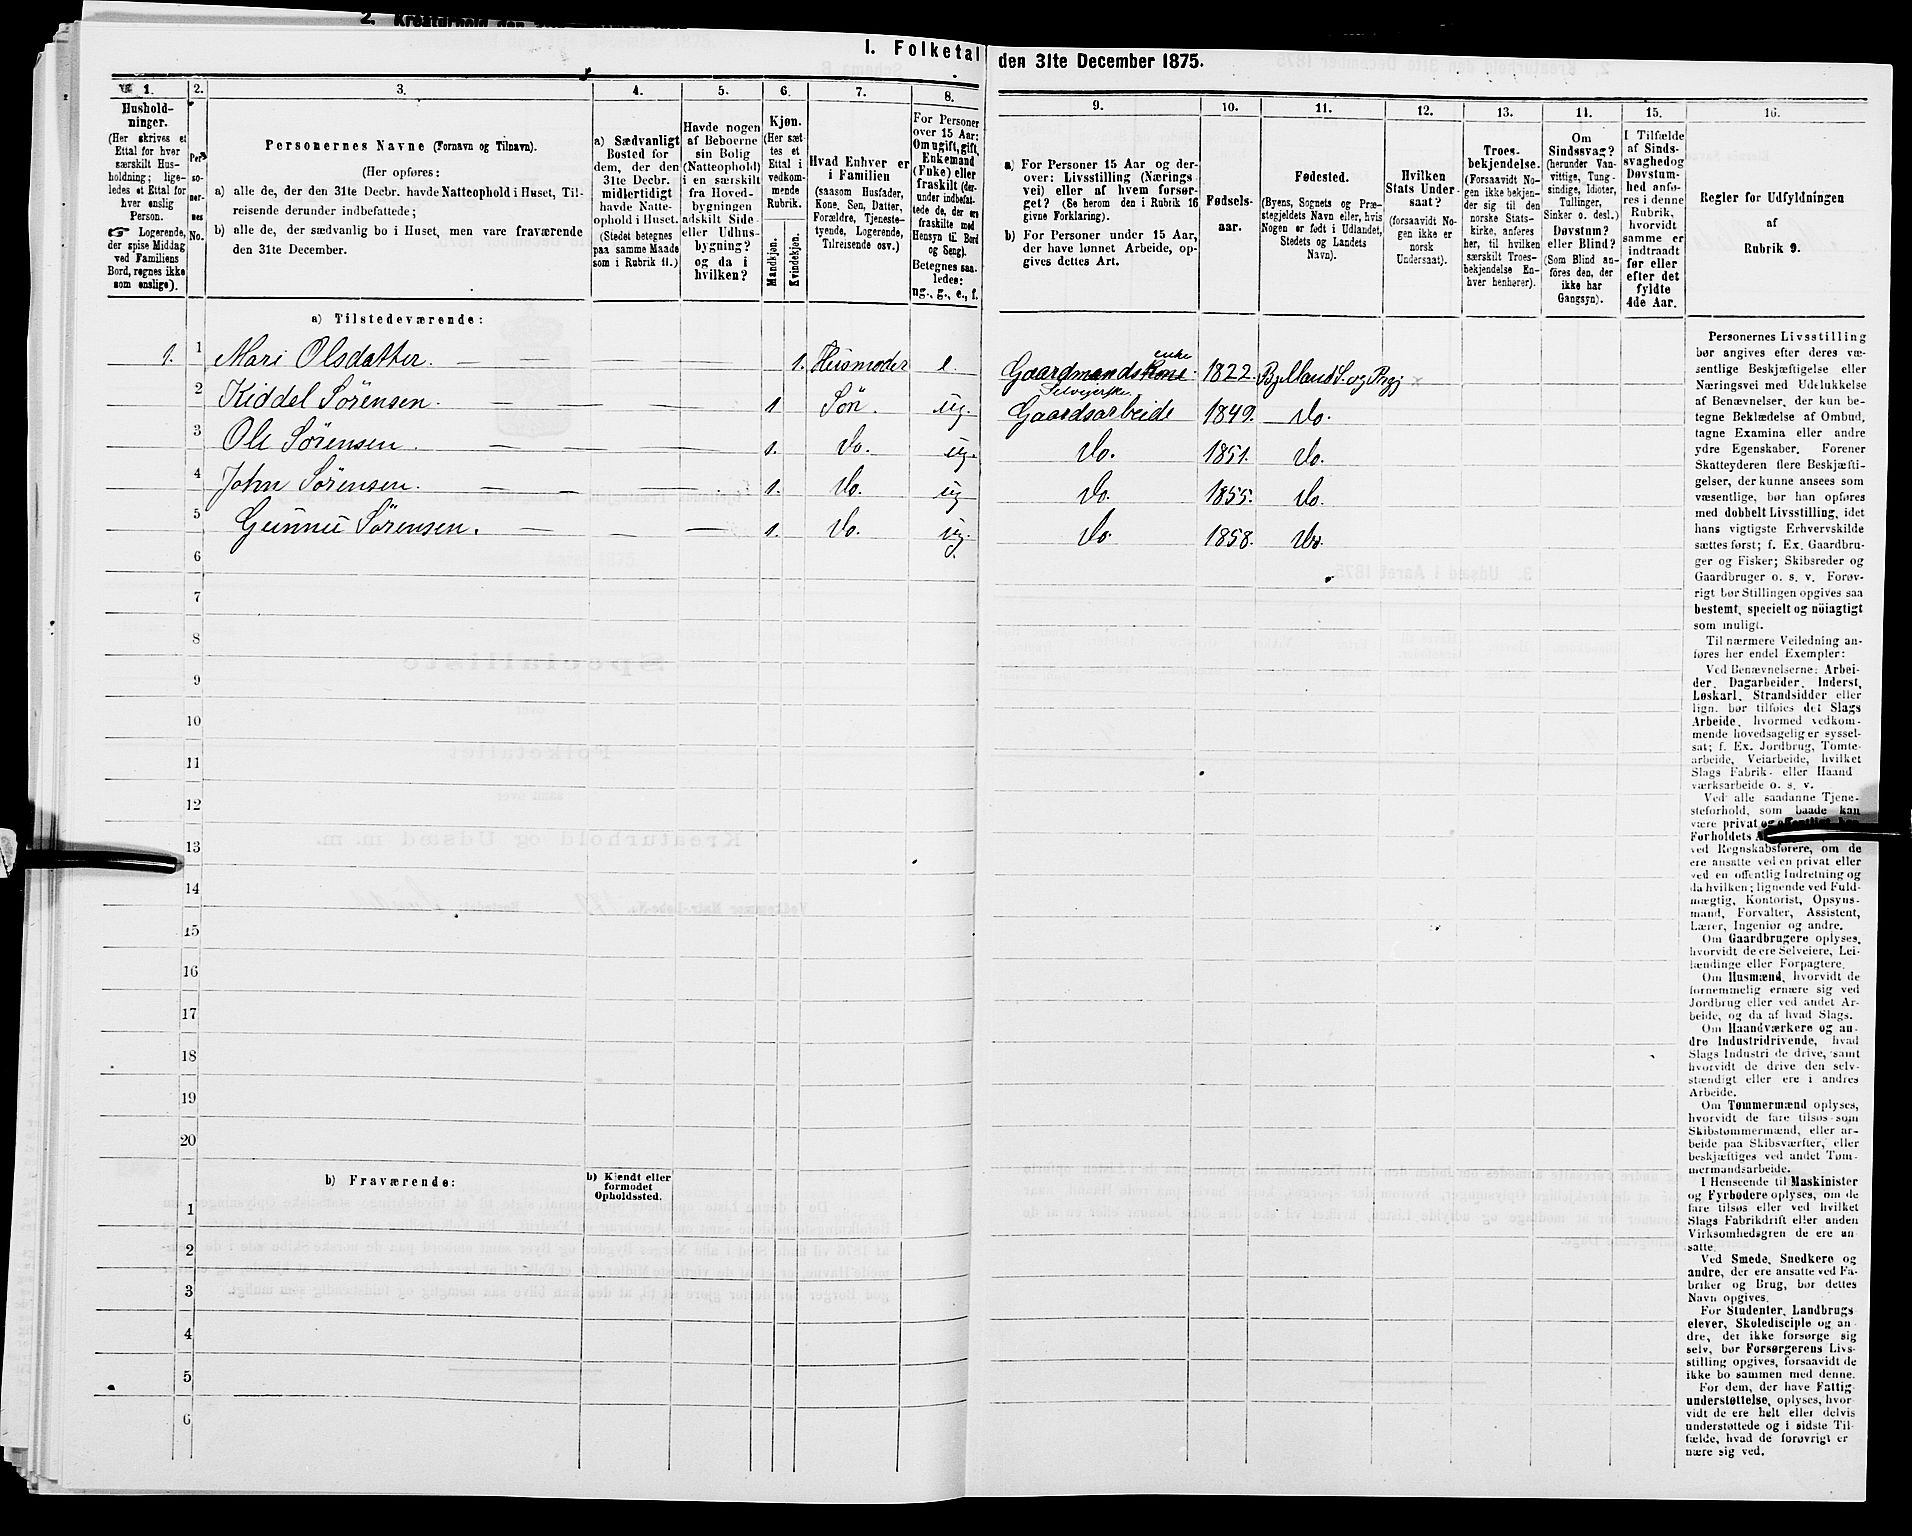 2. Kreaturhold den
I. Folketal
den 31te December 1875.
1.
2.
3.
4.
5.
6.
7.
8.
9.
10.
11.
12.
13.
14.
15.
16.
Hushold-
ninger.
(Her skrives et
Ettal for hver
særskilt Hus-
holdning; lige-
ledes et Ettal for
hver enslig
Person.
☞ Logerende,
der spise Middag
ved Familiens
Bord, regnes ikke
som enslige).
Per-
so-
ner-
nes
No.
Personernes Navne (Fornavn og Tilnavn).
(Her opføres:
a) alle de, der den 31te Decbr. havde Natteophold i Huset, Til-
reisende derunder indbefattede;
b) alle de, der sædvanlig bo i Huset, men vare fraværende
den 31te December.
a) Sædvanligt
Bosted for
dem, der den
31te Decbr.
midlertidigt
havde Natte-
ophold i Huset.
(Stedet betegnes
paa samme Maade
som i Rubrik 11.)
Havde nogen
af Beboerne
sin Bolig
(Natteophold)
i en særskilt
fra Hoved-
bygningen
adskilt Side-
eller Udhus-
bygning?
og da i
hvilken?
Kjøn.
(Her sæt-
tes et
Ettal i
vedkom-
mende
Rubrik.
Mandkjøn.
Kvindekjøn.
Hvad Enhver er
i Familien
(saasom Husfader,
Kone, Søn, Datter,
Forældre, Tjeneste-
tyende, Logerende,
Tilreisende osv.)
For Personer
over 15 Aar:
Om ugift, gift,
Enkemand
(Enke) eller
fraskilt (der-
under indbefat-
tede de, der ere
fraskilte med
Hensyn til Bord
og Seng).
Betegnes saa-
ledes:
ug., g., e., f.
a) For Personer 15 Aar og der-
over: Livsstilling (Nærings-
vei) eller af hvem forsør-
get? (Se herom den i Rubrik 16
givne Forklaring).
b) For Personer under 15 Aar,
der have lønnet Arbeide, op-
gives dettes Art.
Fødsels-
aar.
Fødested.
(Byens, Sognets og Præ-
stegjeldets Navn eller, hvis
Nogen er født i Udlandet,
Stedets og Landets
Navn).
Hvilken
Stats Under-
saat?
(forsaavidt No-
gen ikke er
norsk
Undersaat).
Troes-
bekjendelse.
(Forsaavidt No-
gen ikke bekjen-
der sig til den
norske Stats-
kirke, anføres
her, til hvilken
særskilt Troes-
bekjendelse En-
hver henhører).
Om
Sindssvag?
(herunder Van-
vittige, Tung-
sindige, Idioter,
Tullinger,
Sinker o. desl.)
Døvstum?
eller Blind?
(Som Blind an-
føres den, der
ikke har
Gangsyn).
I Tilfælde
af Sinds-
svaghedog
Døvstum-
hed anfø-
res i denne
Rubrik,
hvorvidt
samme er
indtraadt
før eller
efter det
fyldte
4de Aar.
Regler for Udfyldningen
af
Rubrik 9.
a) Tilstedeværende:
1. 1 Mari Olsdatter. — — — 1. Husmoder e. Gaardmandskone enke. 1822. Bjelland S. og Prgj
Selveierske.
2 Kiddel Sörensen. — — — 1 Sön. ug. Gaardsarbeide 1849. Do.
3 Ole Sörensen. — — — 1. Do. ug. Do. 1851. Do.
4 John Sörensen. — — — 1. Do. ug Do. 1855. Do.
5 Gunnu Sörensen. — — 1. Do. ug. Do. 1858. Do.
6
7
8
9
10
11
12
13
14
15
16
17
18
19
20
b) Fraværende:
b) Kjendt eller
formodet
Opholdssted.
1
2
3
4
5
6
Personernes Livsstilling
bør angives efter deres væ-
sentlige Beskjæftigelse eller
Næringsvei med Udelukkelse
af Benævnelser, der kun be-
tegne Beklædelse af Ombud,
tagne Examina eller andre
ydre Egenskaber. Forener
Skatteyderen flere Beskjæfti-
gelser, der kunne ansees som
væsentlige, bør han opføres
med dobbelt Livsstilling, idet
hans vigtigste Erhvervskilde
sættes først; f. Ex. Gaardbru-
ger og Fisker; Skibsreder og
Gaardbruger o. s. v. Forøv-
rigt bør Stillingen opgives saa
bestemt, specielt og nöiagtigt
som muligt.
Til nærmere Veiledning an-
føres her endel Exempler:
Ved Benævnelserne: Arbei-
der, Dagarbeider, Inderst,
Løskarl, Strandsidder eller
lign. bør tilføies det Slags
Arbeide, hvormed vedkom-
mende hovedsagelig er syssel-
sat; f. Ex. Jordbrug, Tomte-
arbeide, Veiarbeide, hvilket
Slags Fabrik- eller Haand
værksarbeide o. s. v.
Ved alle saadanne Tjene-
steforhold, som baade kan
være privat og offentligt, bør
Forholdets
ved Regnskabsførere, om de
ere ansatte ved en privat eller
ved en offentlig Indretning og
da hvilken; lignende ved Fuld-
mægtig, Kontorist, Opsyns-
mand, Forvalter, Assistent,
Lærer, Ingeniør og andre.
Om Gaardbrugere oplyses,
hvorvidt de ere Selveiere, Lei-
lændinge eller Forpagtere.
Om Husmænd, hvorvidt de
fornemmelig ernære sig ved
Jordbrug eller ved andet Ar-
beide, og da af hvad Slags.
Om Haandværkere og an-
dre Industridrivende, hvad
Slags Industri de drive, samt
hvorvidt de drive den selv-
stændigt eller ere i andres
Arbeide.
Om Tømmermænd oplyses,
hvorvidt de fare tilsøs som
Skibstømmermænd, eller ar-
beide paa Skibsværfter, eller
beskjæftiges ved andet Tøm-
mermandsarbeide.
I Henseende til Maskinister
og Fyrbødere oplyses, om de
fare tilsøs eller ved hvilket
Slags Fabrikdrift eller anden
Virksomhedsgren de ere an-
satte.
Ved Smede, Snedkere og
andre, der ere ansatte ved Fa-
briker og Brug, bør dettes
Navn opgives.
For Studenter, Landbrugs-
elever, Skoledisciple og an-
dre, der ikke forsørge sig
selv, bør Forsørgerens Livs-
stilling opgives, forsaavidt de
ikke bo sammen med denne.
For dem, der have Fattig-
understøttelse, oplyses, hvor-
vidt de ere helt eller delvis
understøttede og i sidste Til-
fælde, hvad de forøvrigt er
nære sig ved.